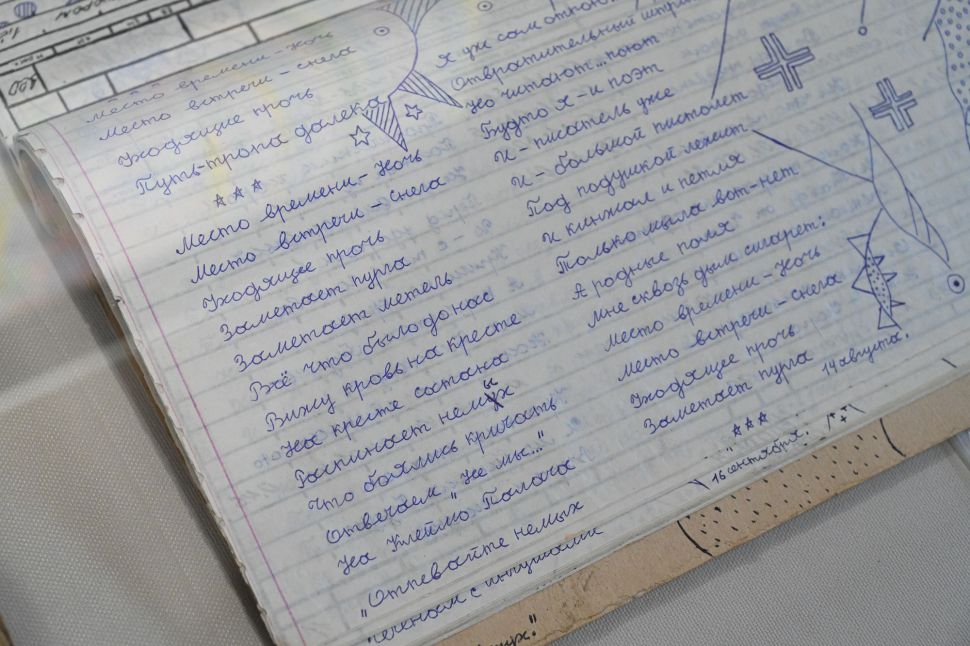 место времени - Ночь
Место встречи - снега
Уходящие прочь
Путь-тропа далека
Место времени - Ночь
Место встречи - снега
Уходящее прочь
Заметает пурга
Заметает метель
Всё что было до нас
Вижу кровь на кресте
На кресте сатана
Распинает немых
Что боялись кричать
Отвечаем "Не мы..."
На Клеймо Палача
"Отпевайте немых
с ингушами
Я уж сам
Отвратительный
Но читают... поют
Будто я - и поэт
И - писатель уже
И - большой пистолет
Под подушкой лежит
И кинжал и петля
Только мыла вот - нет
А родные поля
Мне сквозь дым сигарет:
Место времени - Ночь
Место встречи - снега
Уходящее прочь
Заметает пурга
14 августа.
16 сентября.